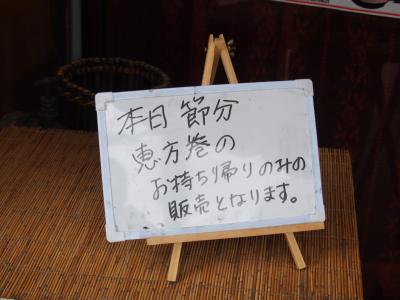 本日 節分
恵方巻の
お持ち帰りのみの
販売となります。